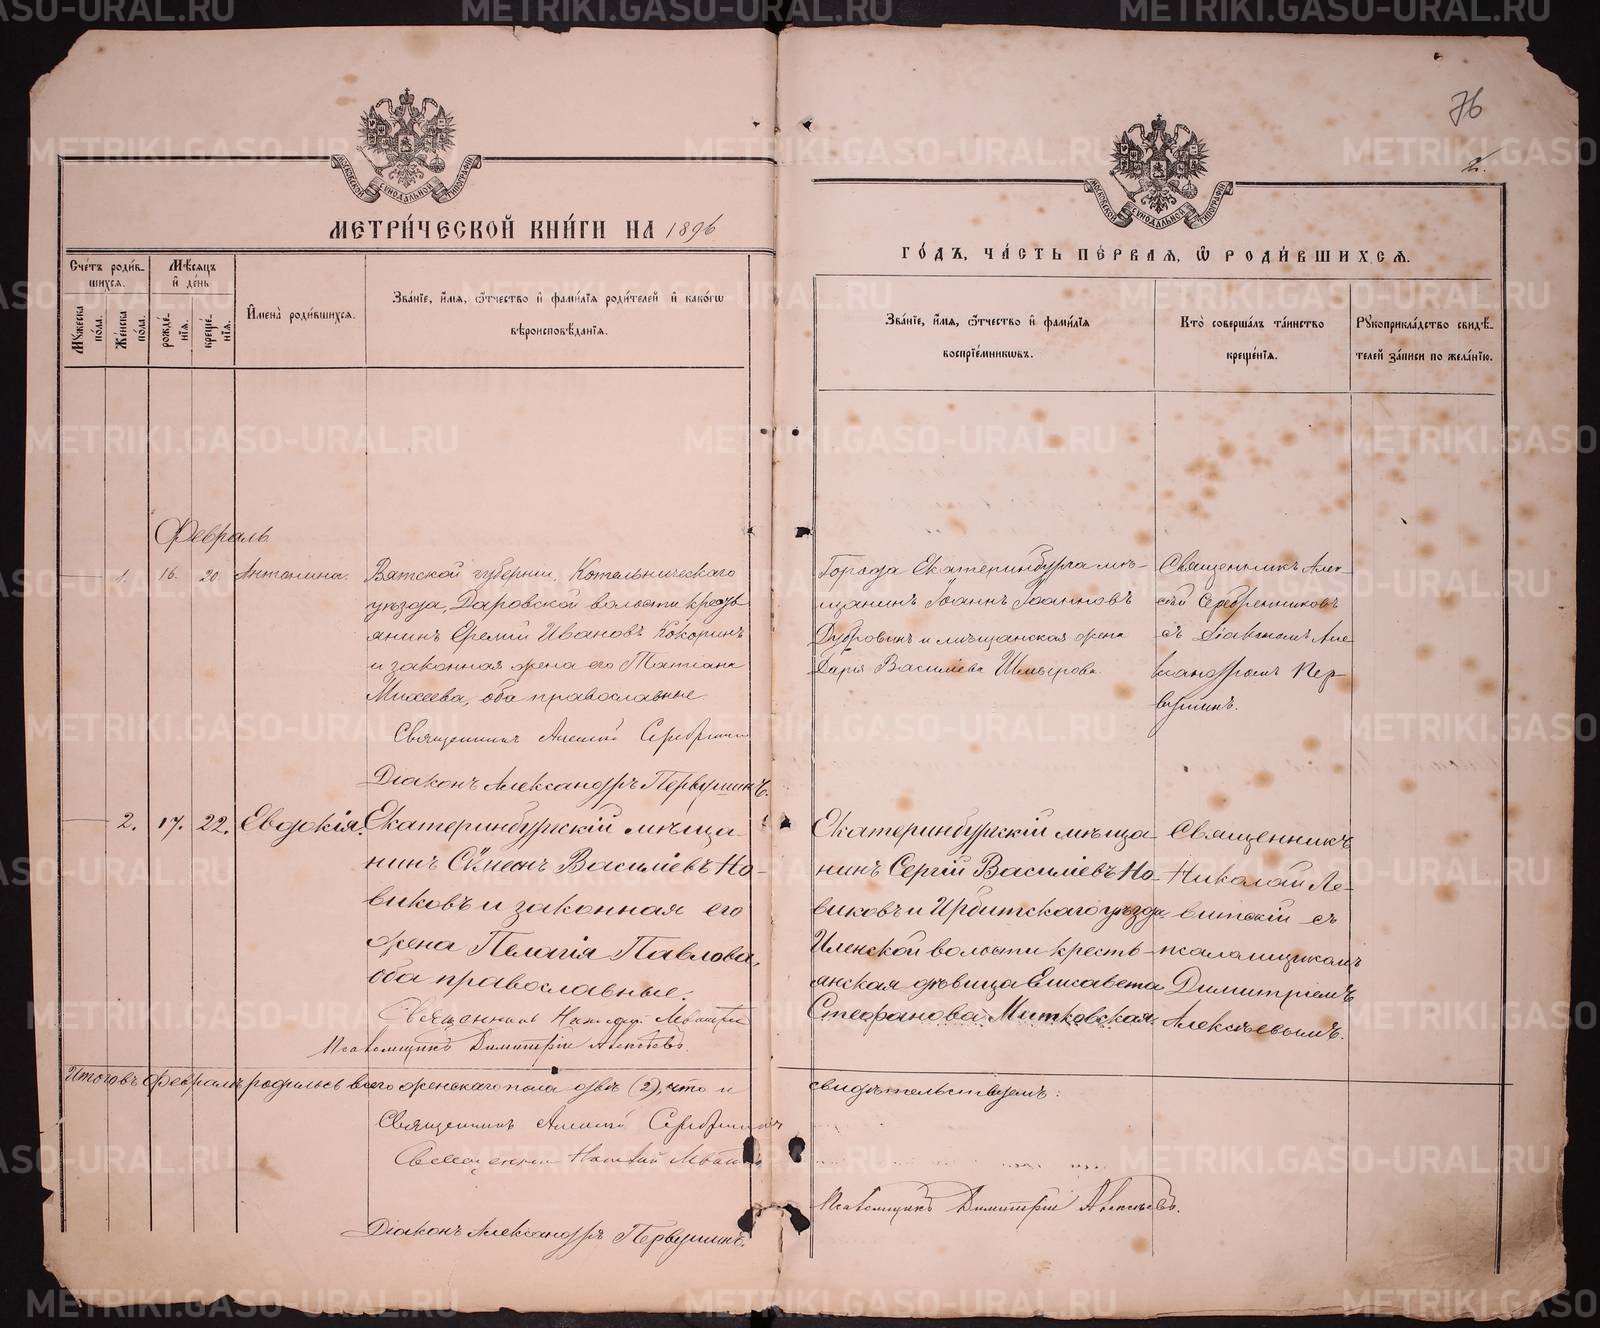 76
2.
МОСКОВСКОЙ СѴНОДАЛЬНОЙ ТИПОГРАФІИ
МОСКОВСКОЙ СѴНОДАЛЬНОЙ ТИПОГРАФІИ
МЕТРИ́ЧЕСКОЙ КНИ́ГИ НА 1896
ГО́ДЪ, ЧА́СТЬ ПЕ́РВАЯ, Ѡ РОДИ́ВШИХСЯ.
Сче́тъ роди́в-
шихся.
Мꙋ́жеска
пола.
Же́нска
пола.
Мѣ́сяцъ
и҆ де́нь
рожде́-
нїя.
креще́-
нїя.
И҆мена̀ роди́вшихся.
Зва́нїе, и҆́мя, ѻ҆́тчество и҆ фами́лїя роди́телей и҆ како́гѡ
вѣроисповѣ́данїя.
Зва́нїе, и҆́мя, ѻ҆́тчество и҆ фами́лїя
воспрїе́мникѡвъ.
Кто̀ соверша́лъ та́инство
креще́нїя.
Рꙋкоприкла́дство свидѣ́-
телей за́писи по жела́нїю.
Февраль
1. 16. 20 Антонина.
Вятской губерніи, Котельническаго
уѣзда, Даровской волости кресть-
янинъ Еремій Ивановъ Кокоринъ
и законная жена его Татіана
Михеева, оба православные.
Священникъ Алексій Серебренник
Діаконъ Александръ Первушинъ.
Города Екатеринбурга мѣ-
щанинъ Іоаннъ Іоанновъ
Дубровинъ и мѣщанская жена
Дарья Василіева
Священникъ Алек-
сѣй Серебренниковъ
съ Діакономъ Але
ксандромъ Пер-
вушинъ.
2. 17. 22. Евдокія.
Екатеринбургскій мѣща-
нинъ Сѵмеонъ Василіевъ Но-
виковъ и законная его
жена Пелагія Павлова,
оба православные.
Священникъ Николай
Псаломщикъ Димитрій Алексѣевъ.
Екатеринбургскій мѣща-
нинъ Сергій Василіевъ Но-
виковъ и Ирбитскаго уѣзда
волости кресть-
янская дѣвица Елисавета
Стефанова Митковская.
Священникъ
Николай Ле-
витскій съ
псаломщикомъ
Димитріемъ
Алексѣевымъ.
Итого въ Февралѣ родилось всего женскаго пола двѣ (2), что и
свидѣтельствуемъ:
Священникъ Алексій Серебренник
Священникъ Николай
Псаломщикъ Димитрій Алексѣевъ.
Діаконъ Александръ Первушинъ.
METRIKI.GASO-URAL.RU